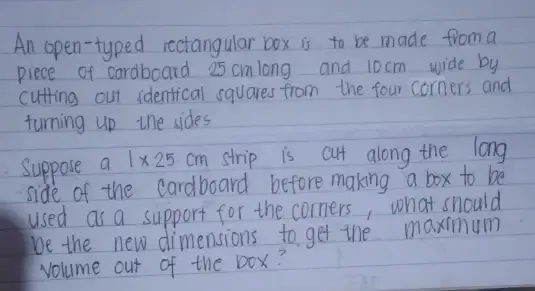 An open-typed rectangular box is to be made from a
piece of cardboard 25 cm long and 10 cm wide by
cutting out identical squares from the four corners and
turning up the sides
Suppose a 1 x 25 cm strip is cut along the long
side of the cardboard before making a box to be
used as a support for the corners, what should
be the new dimensions to get the maximum
volume out of the box?